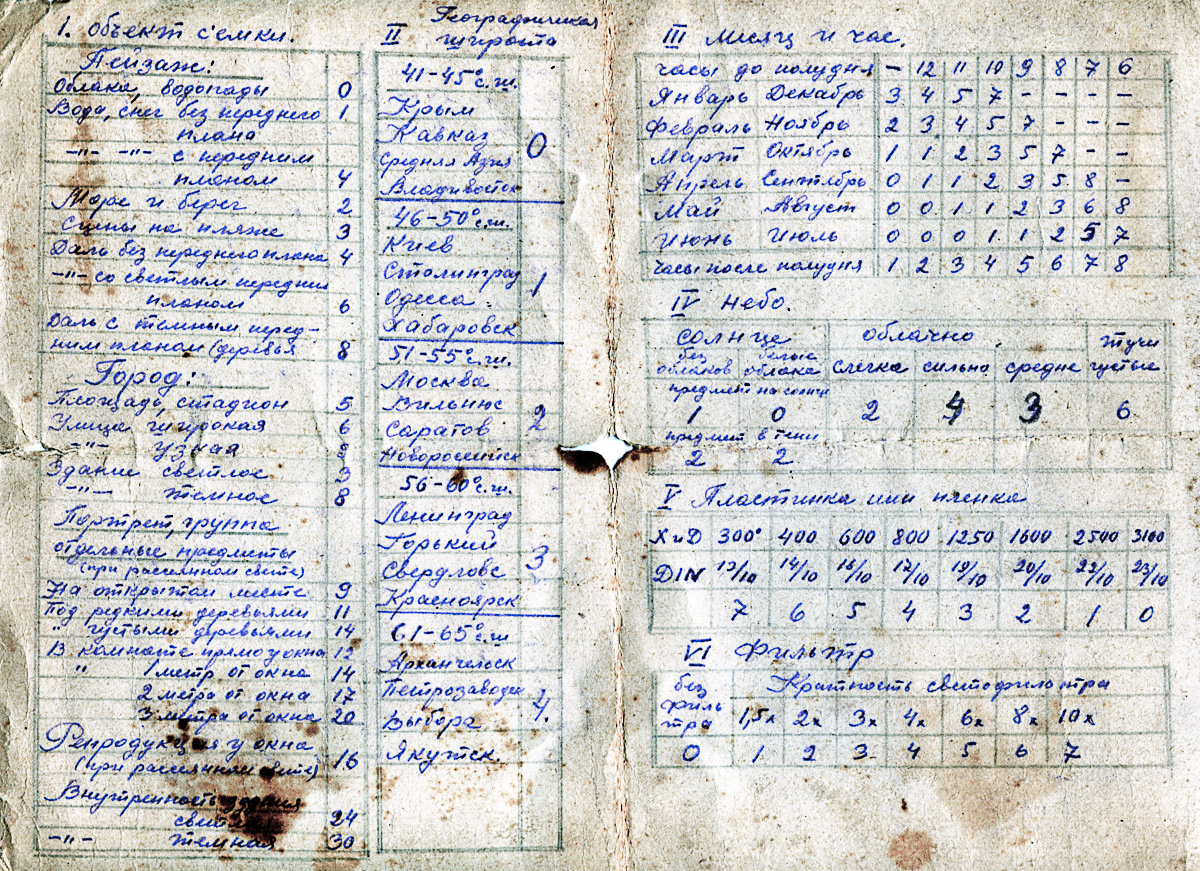 I. Объект с'емки.
Пейзаж:
Облака, водопады 0
Вода, снег без переднего 1
плана
-"- -"- с передним
планом 4
Море и берег 2
Сцены на пляже 3
Даль без переднего плана 4
-"- со светлым передним
планом 6
Даль с темным перед-
ним планом (деревья 8
Город:
Площадь, стадион 5
Улица широкая 6
-"- узкая
Здание светлое 3
-"- темное 8
Портрет, группа
отдельные предметы
(при рассеянном свете)
На открытом месте 9
Под редкими деревьями 11
" густыми деревьями 14
В комнате прямо у окна 12
" 1 метр от окна 14
2 метра от окна 17
3 метра от окна 20
Репродукция у окна
(при рассеянном свете) 16
Внутренность здания
24
-"- темная 30
II Географическая
широта
41-45° с.ш.
Крым
Кавказ 0
Средняя Азия
Владивосток
46-50° с.ш.
Киев
Сталинград 1
Одесса
Хабаровск
51-55° с.ш.
Москва
Вильнюс 2
Саратов
Новороссийск
56-60° с.ш.
Ленинград
Горький 3
Свердловс
Красноярск
61-65° с.ш
Архангельск
Петрозаводск 4.
Выбора
Якутск.
III Месяц и час.
Часы до полудня - 12 11 10 9 8 7 6
Январь Декабрь 3 4 5 7 - - - -
Февраль Ноябрь 2 3 4 5 7 - - -
Март Октябрь 1 1 2 3 5 7 - -
Апрель Сентябрь 0 1 1 2 3 5 8 -
Май Август 0 0 1 1 2 3 6 8
Июнь Июль 0 0 0 1 1 2 5 7
Часы после полудня 1 2 3 4 5 6 7 8
IV Небо.
солнце облачно тучи
без облаков белые облака слегка сильно средне густые
предмет на солнце
1 0 2 4 3 6
предмет в тени
2 2
V Пластинка или пленка
ХиД 300° 400 600 800 1250 1600 2500 3100
DIN 13/10 14/10 16/10 17/10 19/10 20/10 22/10 23/10
7 6 5 4 3 2 1 0
VI Фильтр
без фильтра Кратность светофильтра
1,5х 2х 3х 4х 6х 8х 10х
0 1 2 3 4 5 6 7